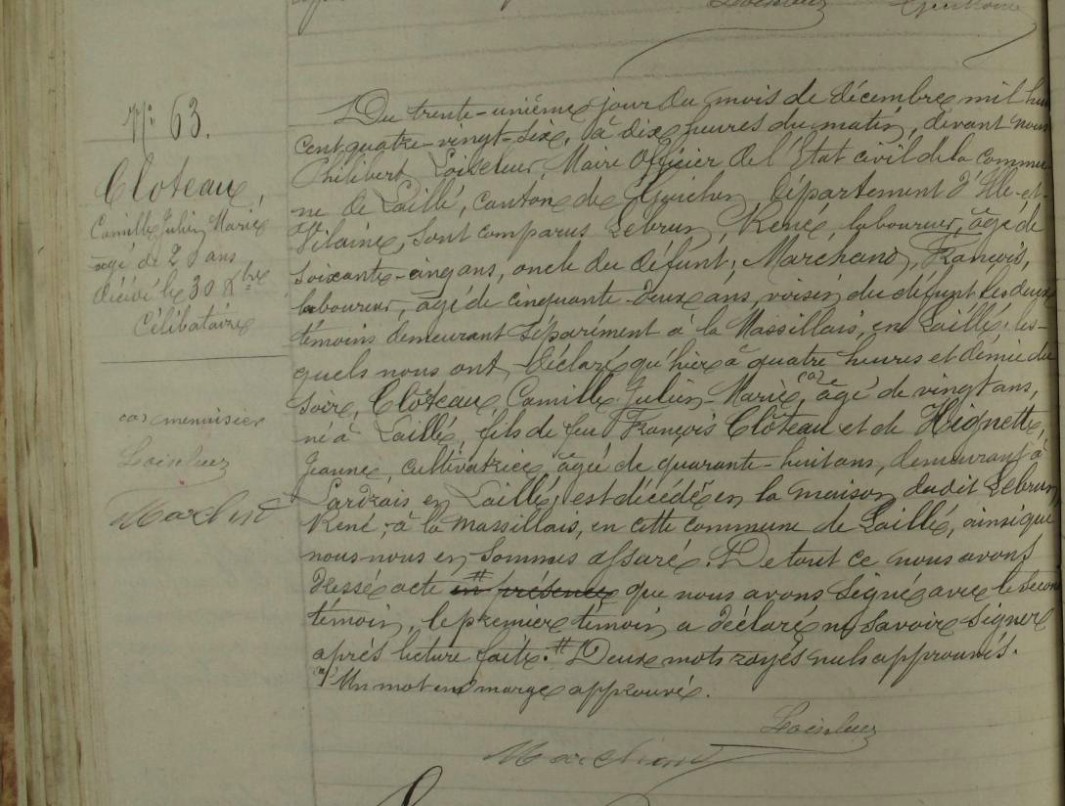 N° 63.
Cloteau,
Camille Julien Marie
âgé de 20 ans
décédé le 30 Xbre
Célibataire
(a) menuisier
Loiseleur
Marchand
Du trente-unième jour du mois de décembre mil huit
cent quatre-vingt-six, à dix heures du matin, devant nous
Philibert Loiseleur, Maire Officier de l'Etat civil de la commu-
ne de Laillé, canton de Guichen, département d'Ille-et-
Vilaine, sont comparus Lebrun, René, laboureur, âgé de
soixante-cinq ans, oncle du défunt; Marchand, François,
laboureur, âgé de cinquante-deux ans, voisin du défunt les deux
témoins demeurant séparément à la Massillais, en Laillé; les-
quels nous ont déclaré qu'hier à quatre heures et demie du
soir, Clôteau, Camille Julien-Marie, (a) âgé de vingt ans,
né à Laillé, fils de feu François Clôteau et de Hignette,
Jeanne, cultivatrice, âgée de quarante-huit ans, demeurant à
en Laillé, est décédé en la maison dudit Lebrun,
René, à la Massillais, en cette commune de Laillé, ainsi que
nous nous en sommes assuré. De tout ce nous avons
dressé acte en # présence que nous avons signé avec le second
témoin, le premier témoin a déclaré ne savoir signer
après lecture faite. # Deux mots rayés nuls approuvés.
(a) Un mot en marge approuvé.
Loiseleur
Marchand